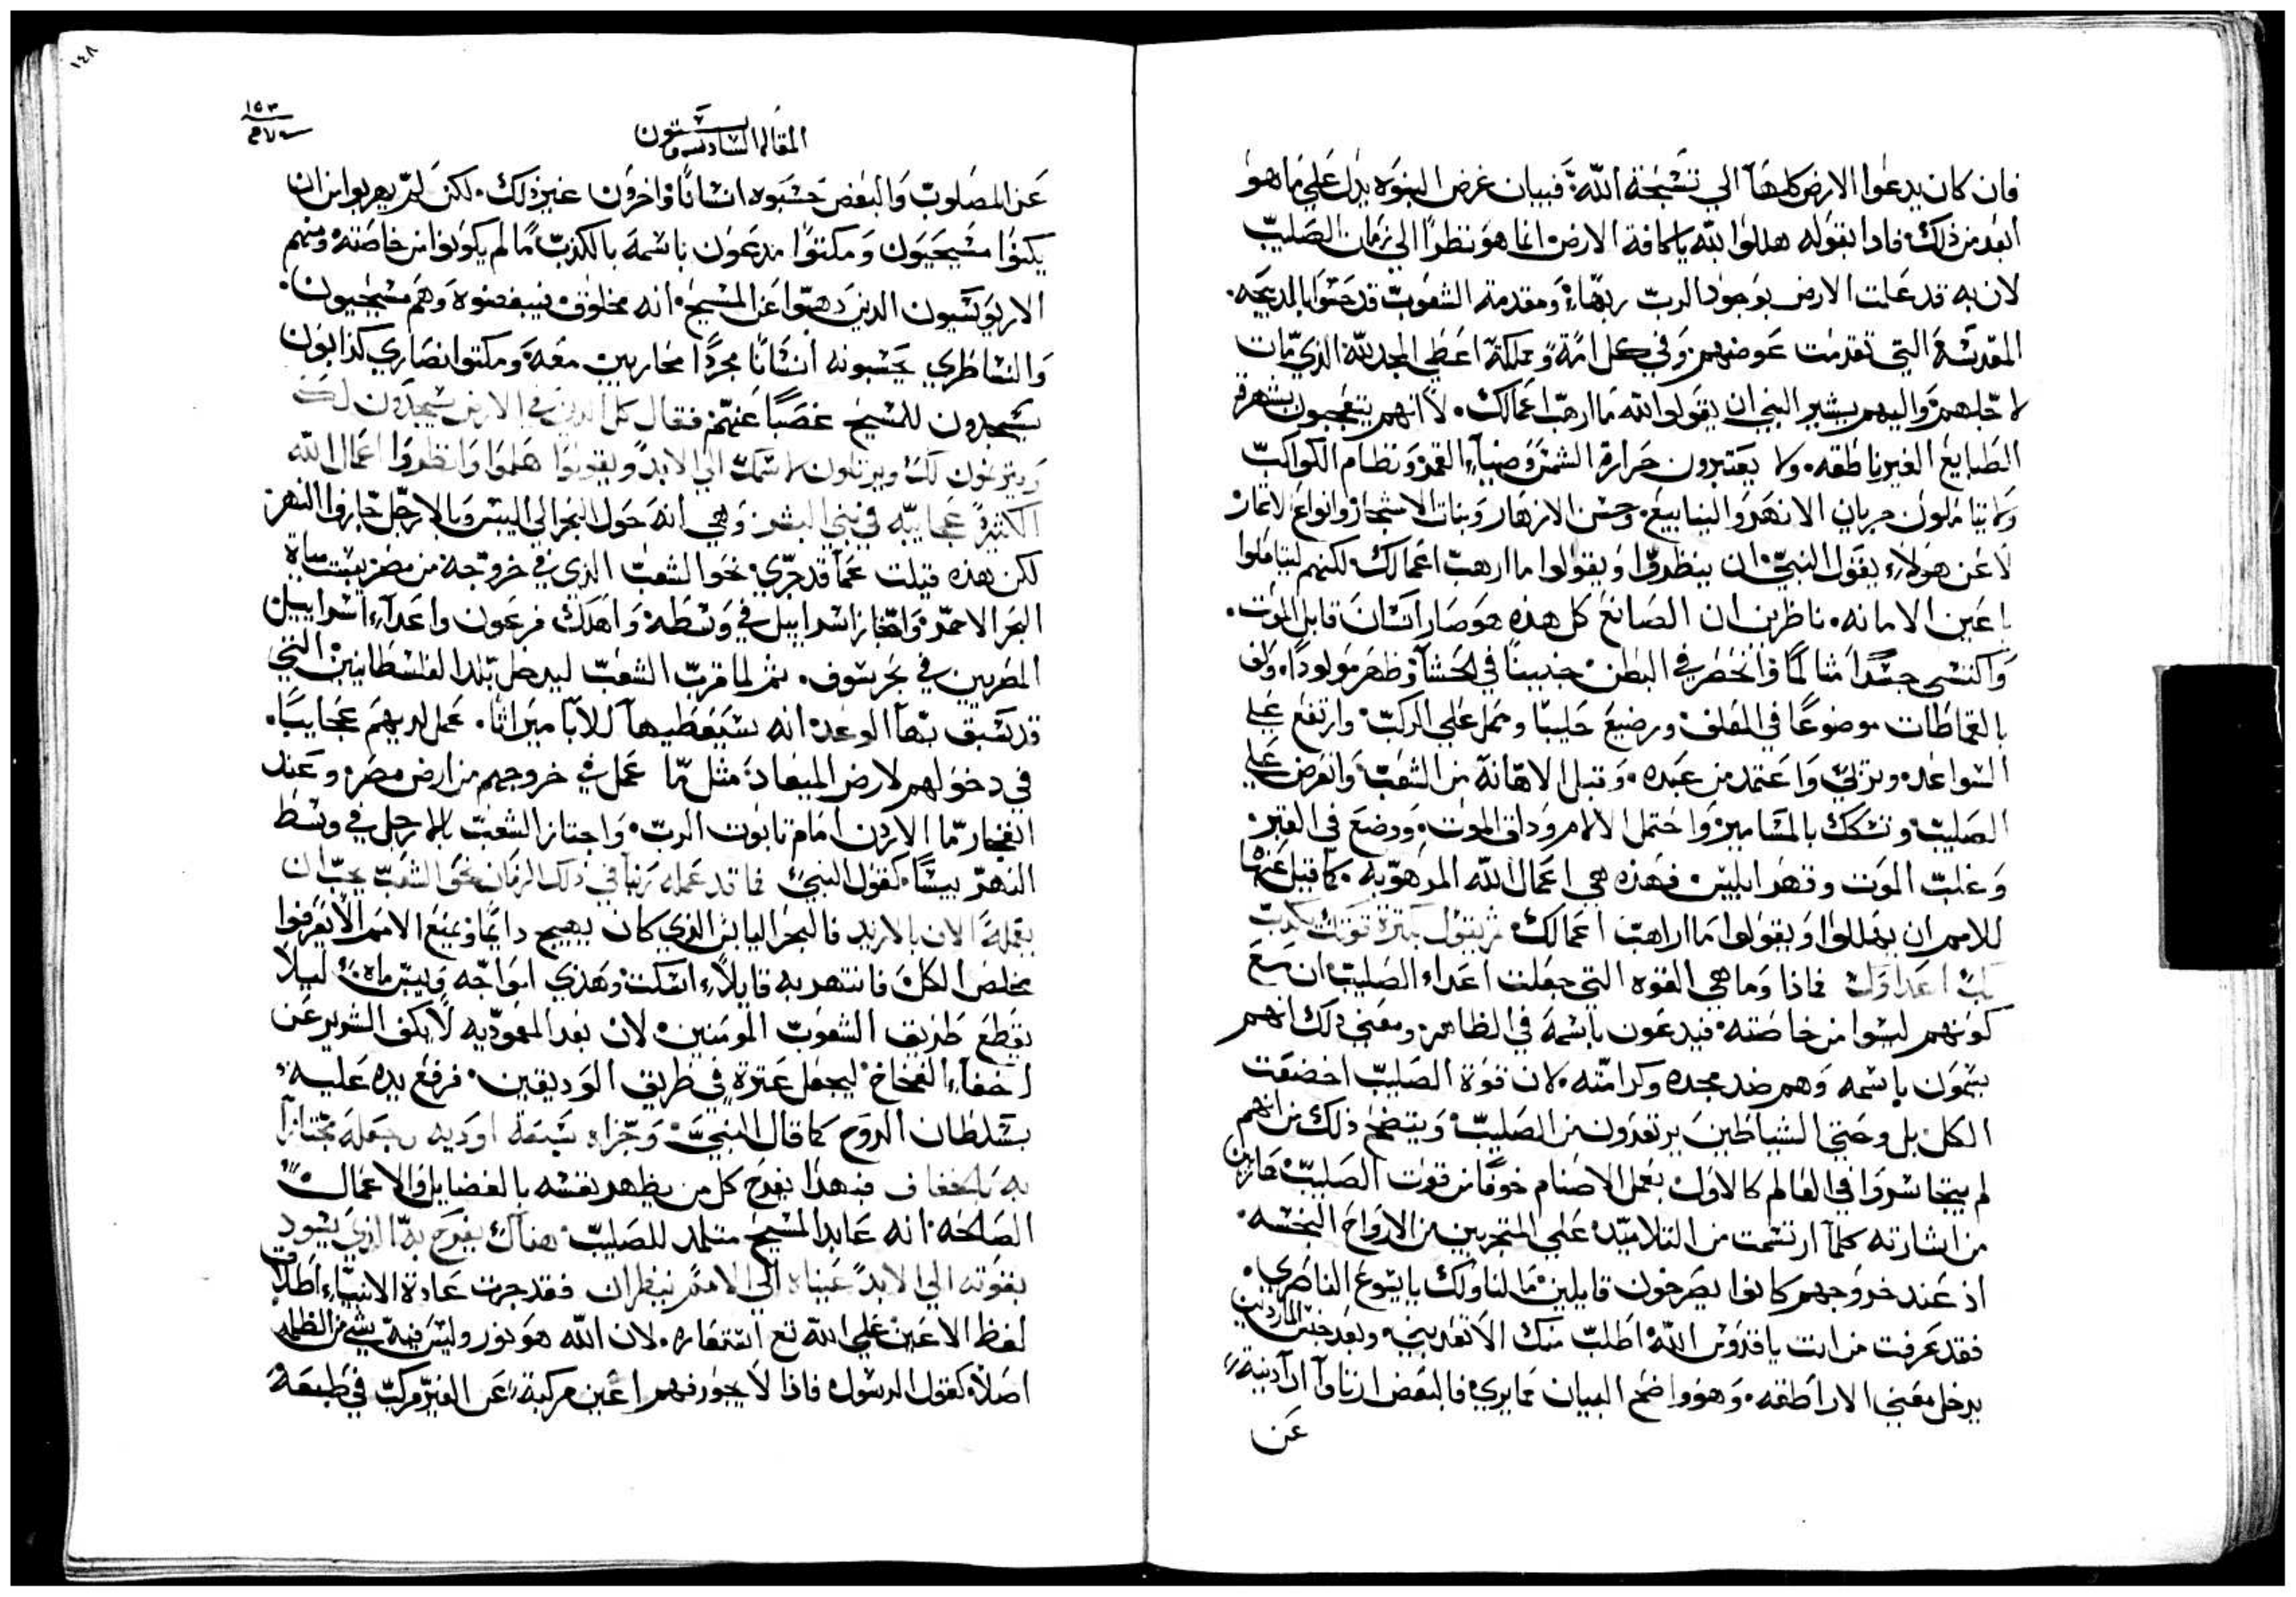 فان كان يدعوا الارض كلها الي تسبحة الله، فبيان غرض النبوه يدل علي ما هو
ابعد من ذلك، فاذا بقوله هللوا لله يا كافة الارض انما هو نظرا الي زمان الصليب
لان به قد علمت الارض بوجود الرب ربها، ومقدمة الشعوب قد المديحه.
المقدسة التي تقدمت عوضهم، وفي كل امة ومملكة اعطي المجد لله الذي مات
لاجلهم، واليهم يشير النبي ان يقولوا لله ما ارهب اعمالك. لا انهم يتعجبون
الطبايع الغير ناطقه. ولا يعتبرون حرارة الشمس وضياء القمر ونظام الكواكب
ولا يتاملون جريان الانهر والينابيع. وحسن الازهار ونبات الاشجار وانواع الاثمار
لا عن هولاء يقول النبي ان ينظروا ويقولوا ما ارهب اعمالك. لكنهم ليتاملوا
باعين الامانه. ناظرين ان الصانع كل هذه هو صار انسان قابل الموت.
واكتسى جسدا متالما وانحصر في البطن، جنينا في الحشا وظهر مولودا. ولف
بالقماطات موضوعا في المعلف، ورضيع حليبا وحمل علي الركب، وارتفع علي
السواعد، وتربي واعتمد من عبده. وقبل الاهانة من الشعب، وانعرض علي
الصليب، وتشكك بالمسامير، واحتمل الالام وذاق الموت، ووضع في القبر.
وغلب الموت وقهر ابليس، فهذه هي اعمال الله المرهوبه. كما قيل عنها
للامم ان يهللوا ويقولوا ما ارهب اعمالك، ثم يقول بكثرة قوتك يكذب
لك اعداوك، فماذا وما هي القوه التي جعلت اعداء الصليب ان مع
كونهم ليسوا من خاصته، فيدعون باسمه في الظاهر، ومعني ذلك انهم
يتسمون باسمه وهم ضد مجده وكرامته. لان قوة الصليب اخضعت
الكل، بل وحتي الشياطين يرتعدون من الصليب، ويتضح ذلك من انهم
لم يتجاسروا في العالم كالاول، بعمل الاصنام خوفا من قوت الصليب،
من اشارته كلما ارتسمت من التلاميد، علي المتجربين من الارواح النجسه.
اذ عند خروجهم كانوا يصرخون قايلين، ما لنا ولك يا يسوع الناصري.
فقد عرفت من انت يا قدوس الله، اطلب منك الا تعذبني. وبعد
يدخل معني الاراطقه. وهو واضح البيان مما يري، فالبعض
عن
١٤٨
١٥٣
المقالة السادسة وستون
عن المصلوب، والبعض حسبوه انسانا، واخرون غير ذلك. لكن لم يهربوا من ان
يكونوا مسيحيون، ومكتوا مدعون باسمه بالكذب، ما لم يكونوا من خاصته، ومنهم
الاريوسيون الدين عن المسيح، انه مخلوق فيبغضوه وهم مسيحيون.
والنساطري يحسبونه انسانا مجردا محاربين معه، ومكتوا نصاري كذابون
يسجدون للمسيح غصبا عنهم، فقال كل الدين في الارض يسجدون لك
ويترنمون لك ويرتلون لاسمك الي الابد، ويقولوا هلموا وانظروا اعمال الله
الكثيرة عجايبه في بني البشر، وهي انه حول البحر الي اليبس، وبالارجل جازوا النهر
لكن هذه قيلت عما قد جري، نحو الشعب الذي في خروجه من مصر
البحر الاحمر، واجتاز اسراييل في وسطه، واهلك فرعون واعداء اسراييل
المصريين في بحر سوف. ثم لما قرب الشعب ليدخل بلد الفلسطانيين، التي
قد سبق بها الوعد، انه سيعطيها للابا ميراثا. عمل لديهم عجايبا.
في دخولهم لارض الميعاد، مثل ما عمل في خروجهم من ارض مصر، وعند
ما الاردن امام تابوت الرب، واجتاز الشعب بالارجل في وسط
النهر يبسا، كقول النبي، فما قد عمله في ذلك الزمان نحو الشعب يجب ان
يقمله الان فالبحر اليابس الذي كان يهيج دايما، ويمنع الامم الا يعرفوا
مخلص الكل، فانتهر به قايلا، اسكت، وهذي امواجه، ليلا
يقطع طريق الشعوب المومنين، لان بعد المعموديه لا يكف الشرير عن
اخفاء الفخاخ، ليجعل عثرة في طريق الوديقين، فرفع يده عليه،
بسلطان الروح كما قال النبي، وجزاه سبعة اوديه وجعله مجتازا
به فبهذا يفرح كل من يظهر نفسه بالفضايل والاعمال
الصالحة، انه عابد المسيح متلمد للصليب، هناك يفرح به الذي يسود
بقوته الي الابد، عيناه الي الامم ينظران، فقد جرت عادة الانبياء اطلاق
لفظ الاعين علي الله مع استتعاره. لان الله هو نور وليس فيه شي من الظلمه
اصلا، كقول الرسول، فاذا لا يجوز فهم اعين مركبة، عن الغير مركب في طبعه